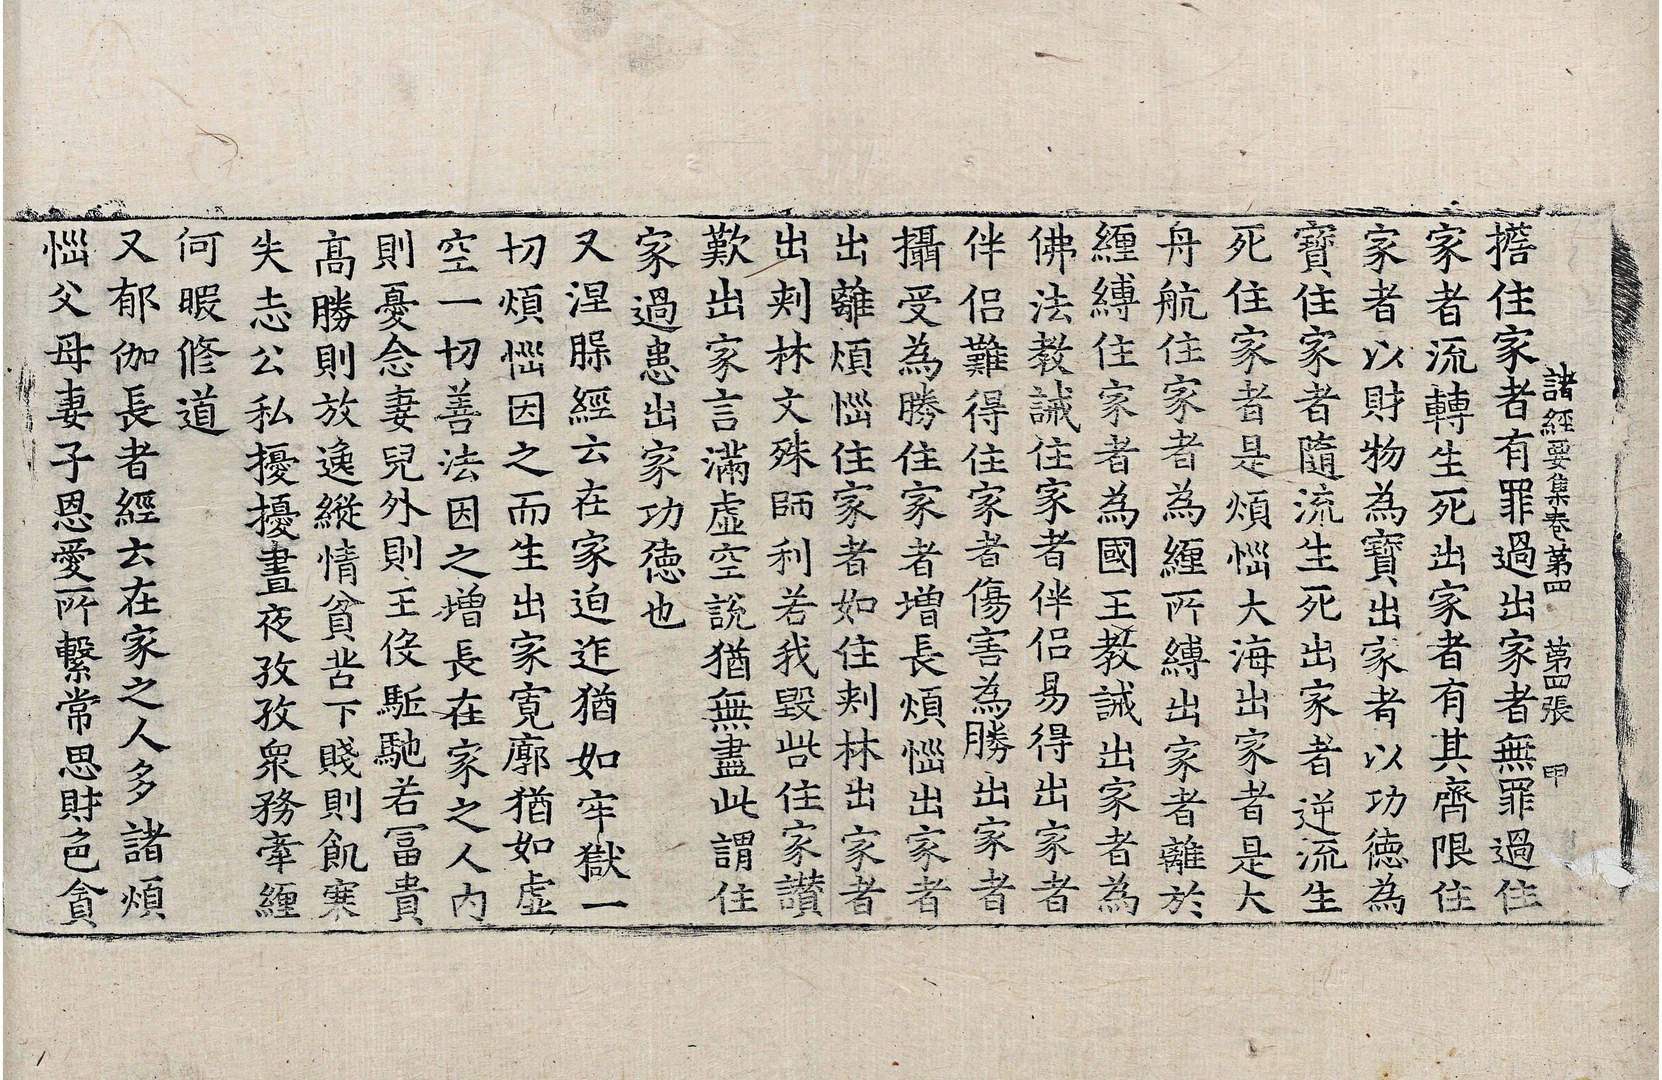 諸經要集卷第四 第四張 甲
擔住家者有罪過出家者無罪過住
家者流轉生死出家者有其齊限住
家者以財物為寶出家者以功德為
寶住家者隨流生死出家者逆流生
死住家者是煩惱大海出家者是大
舟航住家者為纏所縛出家者離於
纏縛住家者為國王教誡出家者為
佛法教誡住家者伴侶易得出家者
伴侶難得住家者傷害為勝出家者
攝受為勝住家者增長煩惱出家者
出離煩惱住家者如住刾林出家者
出刾林文殊師利若我毀呰住家讃
歎出家言滿虛空說猶無盡此謂住
家過患出家功德也
又涅槃經云在家迫迮猶如牢獄一
切煩惱因之而生出家寬廓猶如虛
空一切善法因之增長在家之人內
則憂念妻兒外則王役駈馳若冨貴
高勝則放逸縱情貧苦下賤則飢寒
失志公私擾擾晝夜孜孜衆務牽纏
何暇修道
又郁伽長者經云在家之人多諸煩
惱父母妻子恩愛所繫常思財色貪